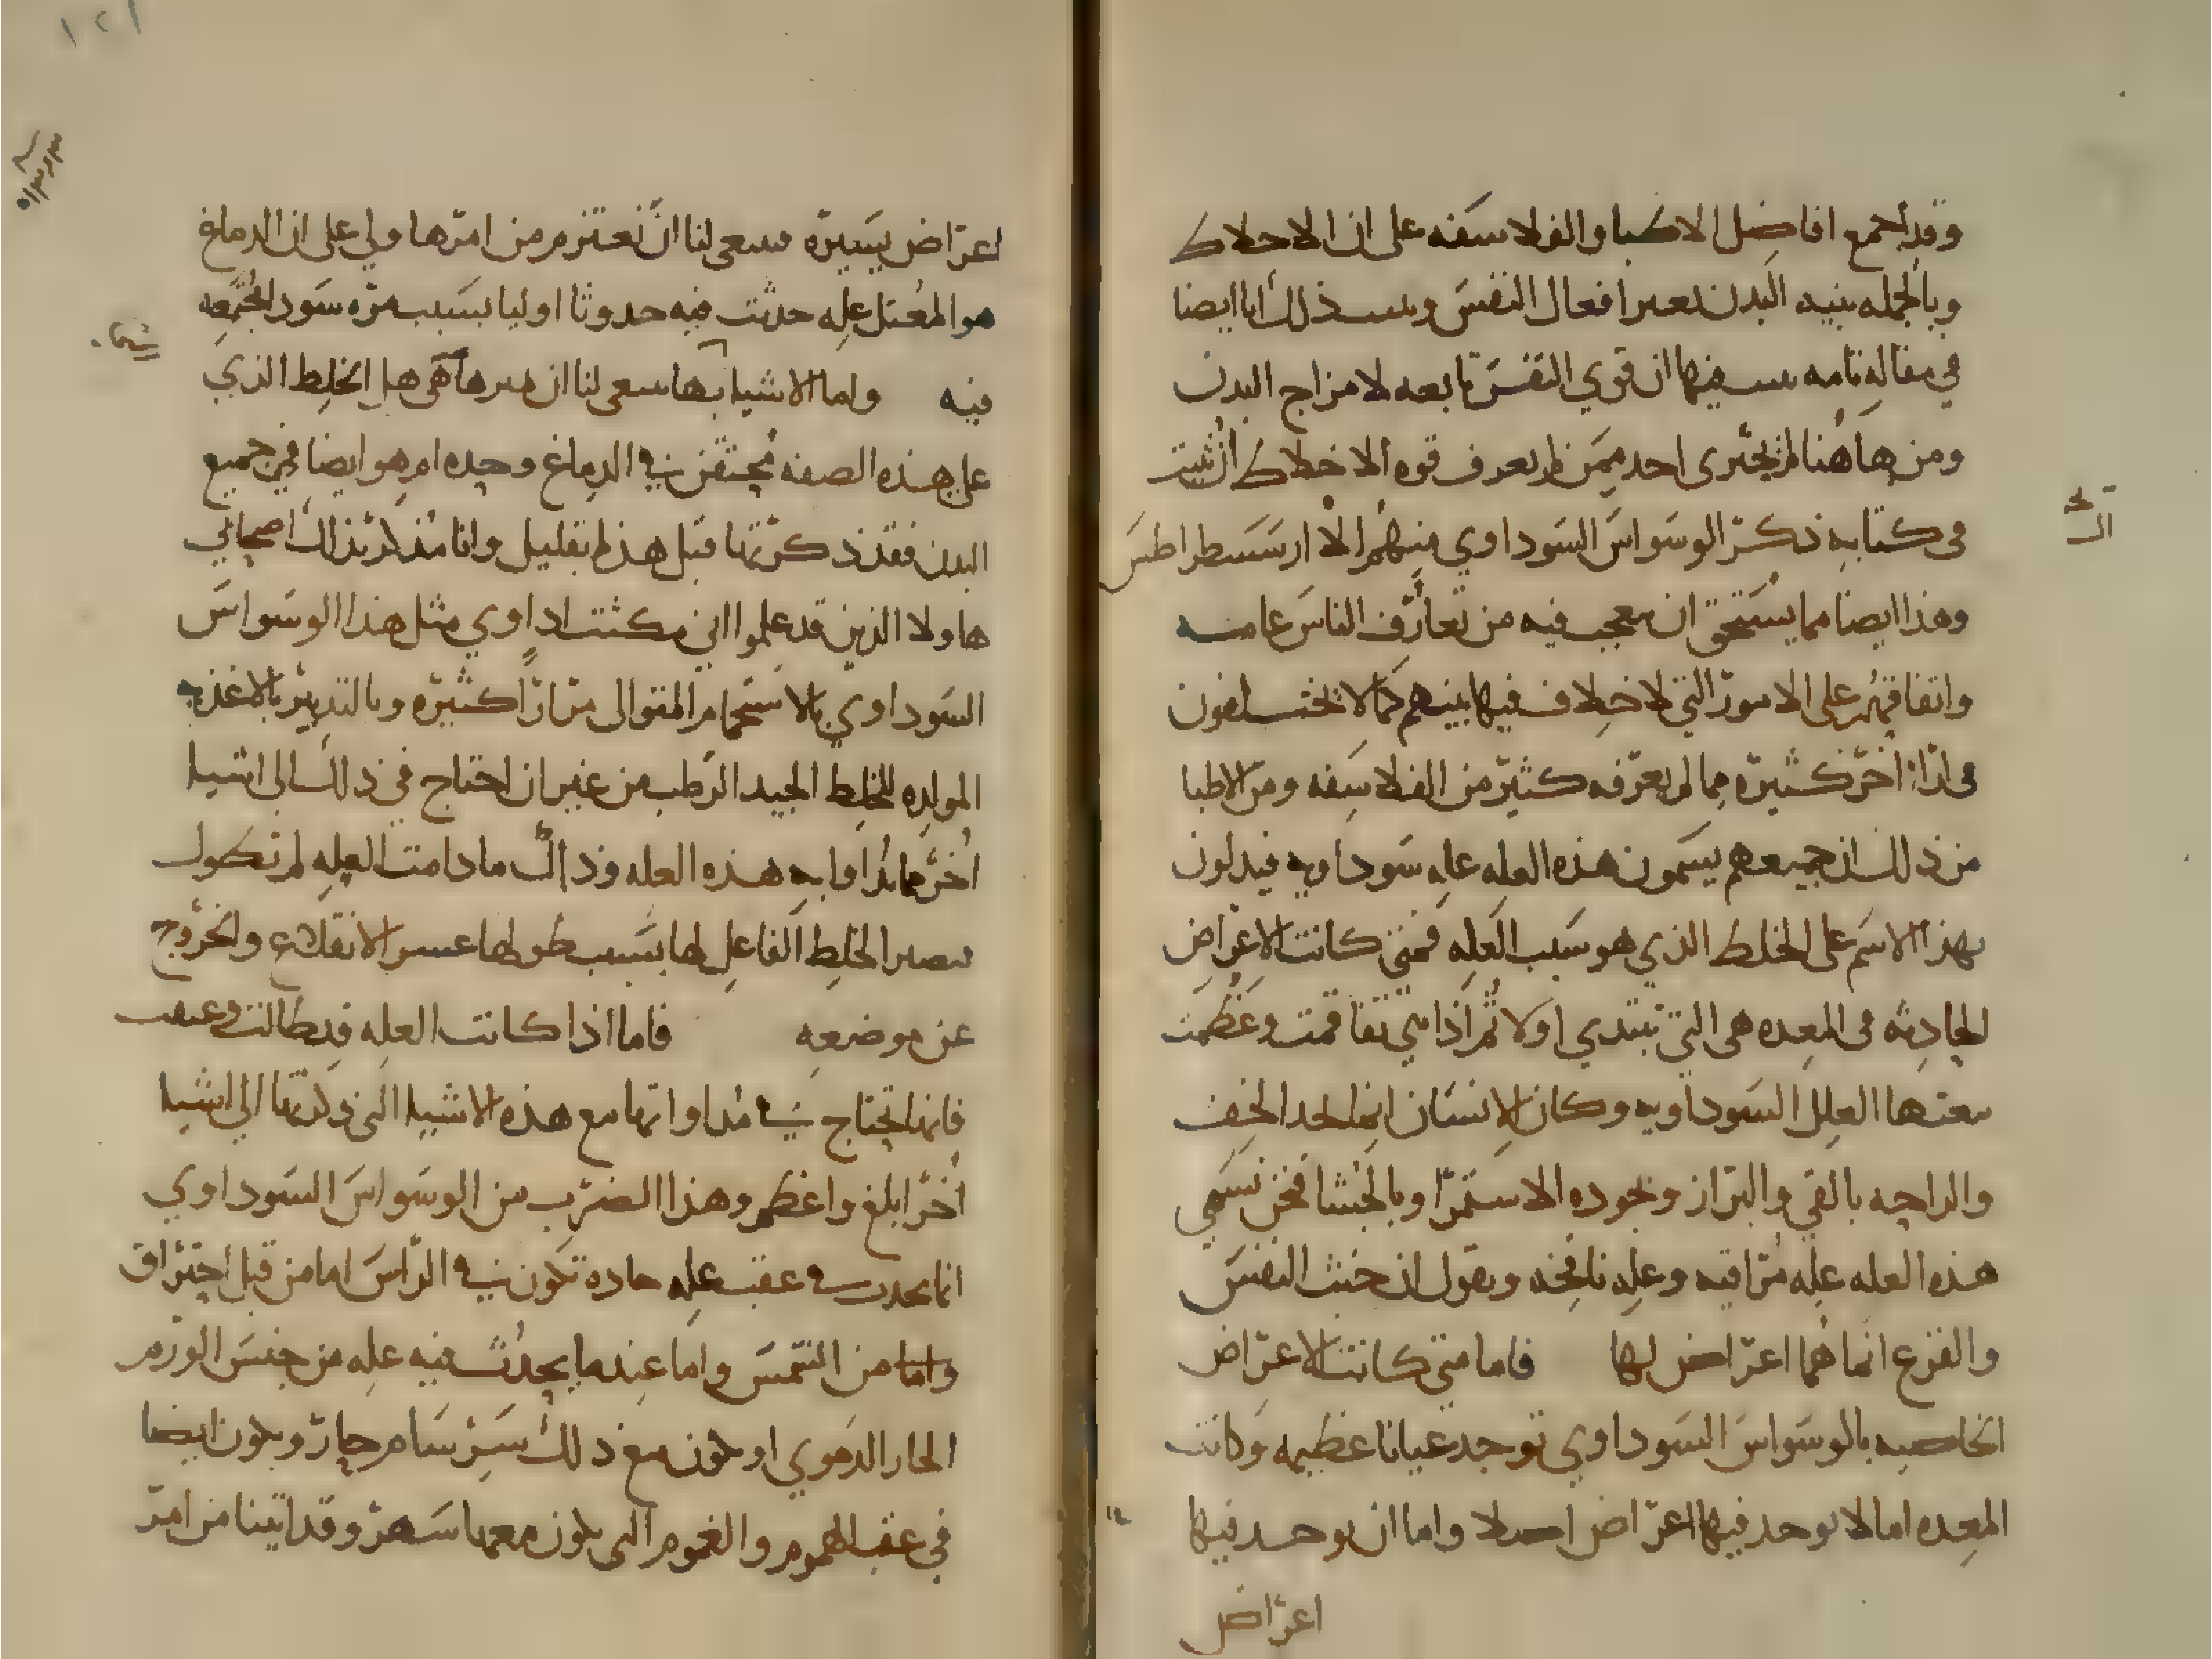 وقد اجمع افاضل الاطبا والفلاسفه على ان الاخلاط
وبالجمله بنيه البدن تغير افعال النفس وبينت ذلك انا ايضا
في مقاله تامه بينت فيها ان قوي النفس تابعه لامزاج البدن
ومن هاهنا لم يجترى احد ممن لم يعرف قوه الاخلاط ان يثبت
فى كتابه ذكر الوسواس السوداوي منهم الا ارسسطراطس
وهذا ايضا مما يستحق ان يتعجب فيه من تعارف الناس عامته
واتفاقهم على الامور التي لا خلاف فيها بينهم كما لا يختلفون
فى ارا اخر كثيره مما لم يعرفه كثير من الفلاسفه ومن الاطبا
من ذلك ان جميعهم يسمون هذه العله عله سوداويه فيدلون
بهذا الاسم على الخلط الذي هو سبب العله فمتى كانت الاعراض
الحادثه فى المعده هى التي تبتدي اولا ثم اذا هي تفاقمت وعظمت
تبعتها العلل السوداويه وكان الانسان انما يجد الخف
والراحه بالقي والبراز وبجوده الاستمرا وبالجشا فنحن نسمي
هذه العله عله مراقيه وعله نافخه ونقول ان خبث النفس
والفزع انما هما اعراض لها فاما متي كانت الاعراض
الخاصيه بالوسواس السوداوي توجد عيانا عظيمه وكانت
المعده اما لا يوجد فيها اعراض اصلا واما ان يوجد فيها
اعراض
تخه
ال
١٢١
اعراض يسيره فينبغى لنا ان نعتزم من امرها ولي على ان الدماغ
هو المعتل عله حدثت فيه حدوثا اوليا بسبب مره سودا مجتمعه
فيه واما الاشيا بها ينبغى لنا ان نميزها هى هل الخلط الذي
على هذه الصفه محتقن في الدماغ وحده ام هو ايضا في جميع
البدن فقد ذكرتها قبل هذا بقليل وانا مذكر بذلك اصحابي
هاولا الذين قد علموا اني مكثت اداوي مثل هذا الوسواس
السوداوي بالاستحمام المتوالى مرارا كثيره وبالتدبير بالاغذيه
المولده للخلط الجيد الرطب من غير ان احتاج في ذلك الى اشيا
اخر مما يداوا به هذه العله وذلك ما دامت العله لم تطول
فيصير الخلط الفاعل لها بسبب طولها عسر الانقلاع والخروج
عن موضعه فاما اذا كانت العله قد طالت وعتقت
فانها تحتاج في مداواتها مع هذه الاشيا التى ذكرتها الى اشيا
اخر ابلغ واعظم وهذا الضرب من الوسواس السوداوي
انما يحدث في عقب عله حاده تكون في الراس اما من قبل احتراق
واما من الشمس واما عندما يحدث فيه عله من جنس الورم
الحار الدموي او يكون مع ذلك سرسام حار ويكون ايضا
في عقب الهموم والغموم التى يكون معها سهر وقد اتينا من امر